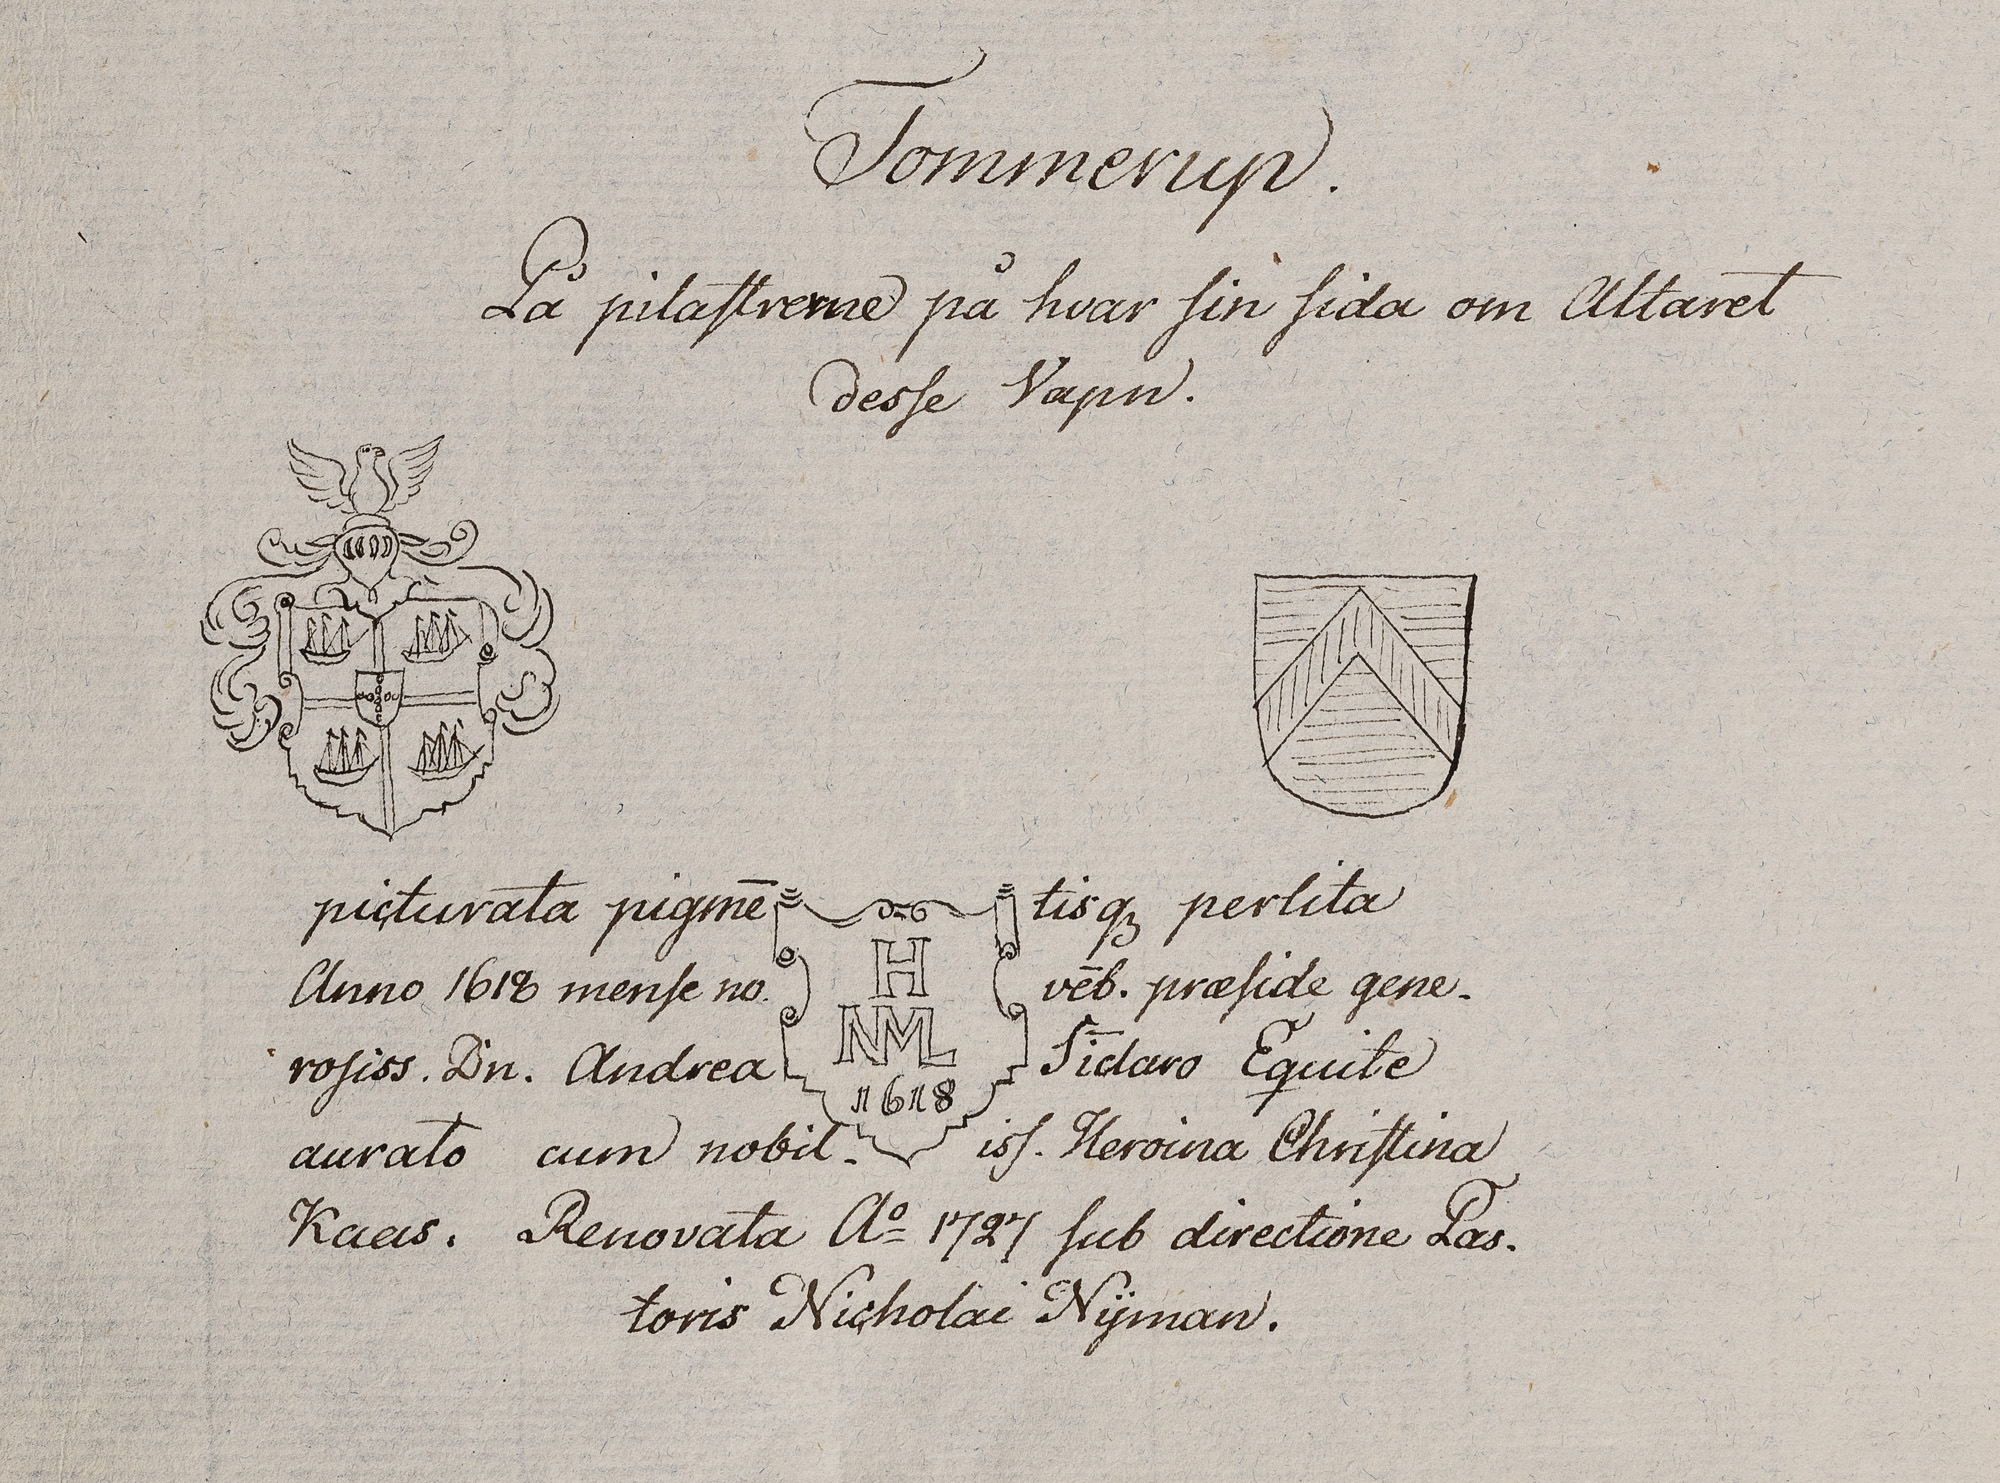 Tommerup.
På pilastrerne på hvar sin sida om Altaret
desse Vapn.
picturata pigmē tisq₃ perlita
Anno 1618 mense no. vēb. præside gene-
rosiss. Dn. Andrea Sīclaro Equite
aurato cum nobil- iss. Heroina Christina
Kaas. Renovata Aº 1727 sub directione Pas-
toris Nicholai Nÿman.
H
NML
1618